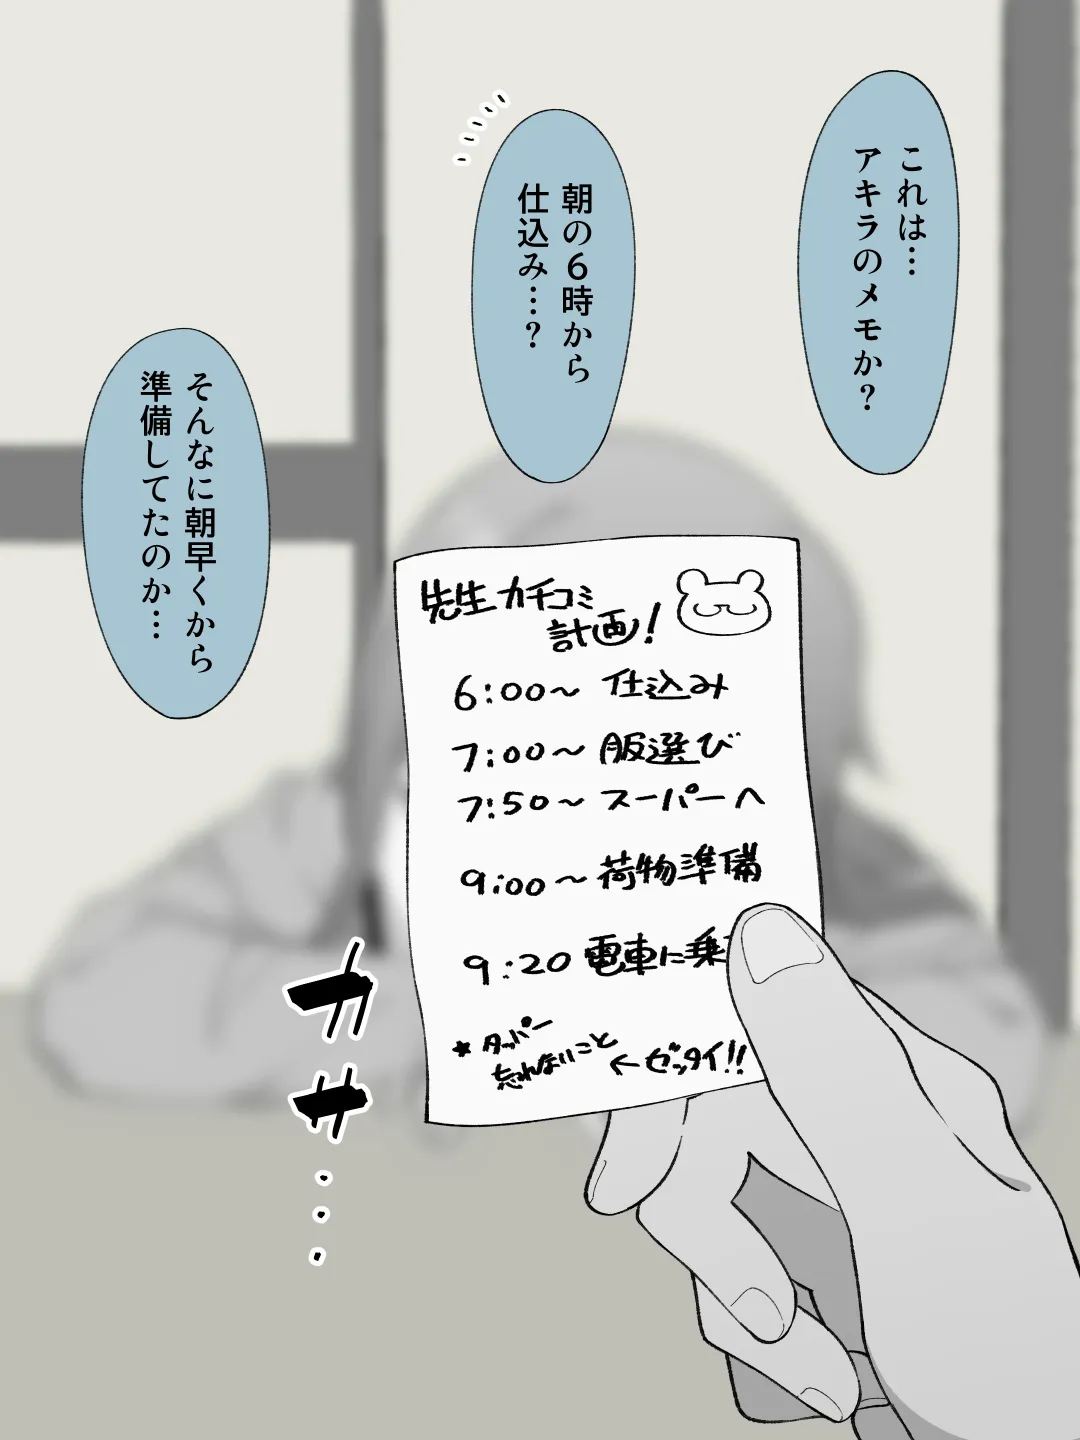 これは…
アキラのメモか？
朝の６時から
仕込み…？
そんなに朝早くから
準備してたのか…
先生カチコミ
計画！
6:00〜 仕込み
7:00〜 服選び
7:50〜 スーパーへ
9:00〜 荷物準備
9:20 電車に乗
★タッパー
忘れないこと
←ゼッタイ!!
カサ...